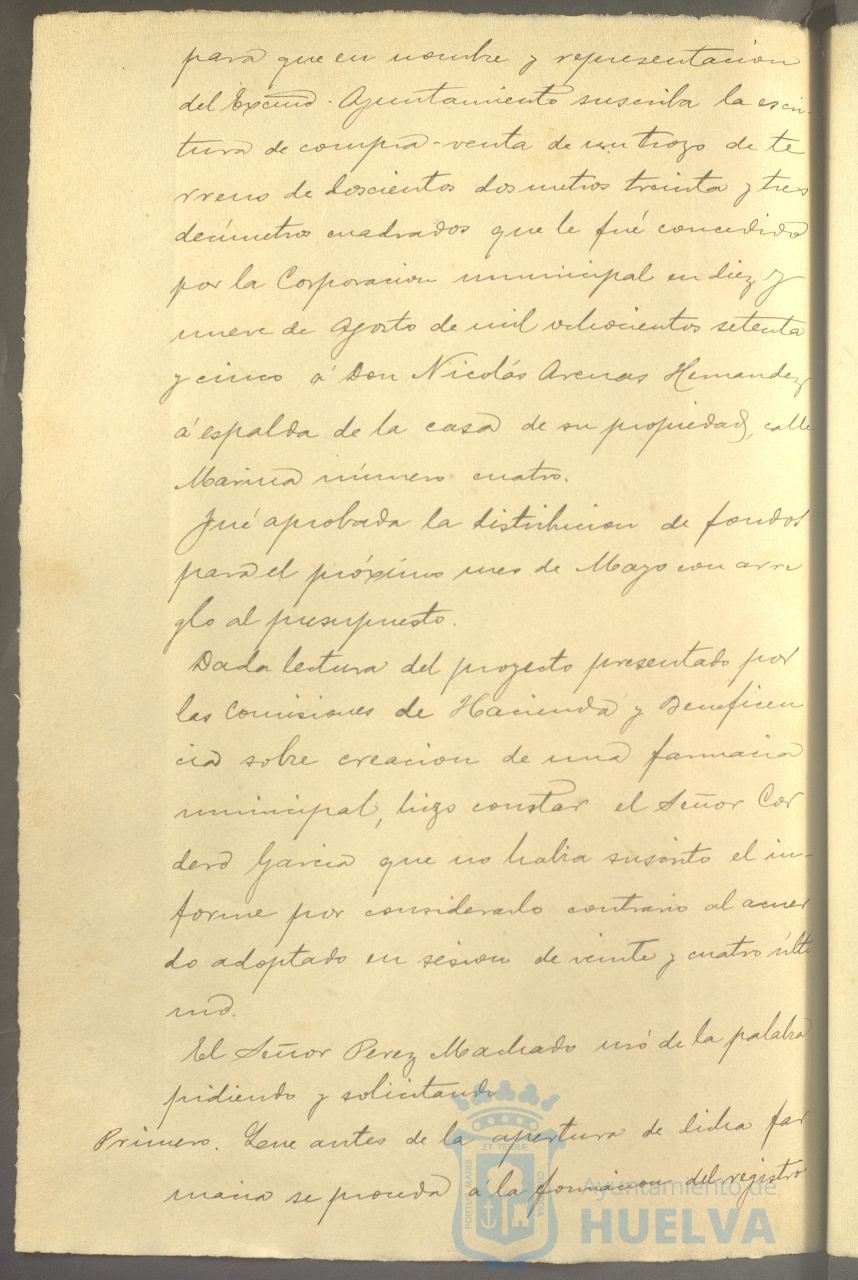 para que en nombre y representacion
del Excmo. Ayuntamiento suscriba la escri-
tura de compra-venta de un trozo de te
rreno de doscientos dos metros treinta y tres
decímetros cuadrados que le fué concedido
por la Corporacion municipal en diez y
nueve de Agosto de mil ochocientos setenta
y cinco á Don Nicolás Arenas Hernandez
á espalda de la casa de su propiedad, calle
Marina número cuatro.
Fué aprobada la distribucion de fondos
para el próximo mes de Mayo con arre
glo al presupuesto.
Dada lectura del proyecto presentado por
las Comisiones de Hacienda y Beneficen
cia sobre creacion de una farmacia
municipal, hizo constar el Señor Cor
dero Garcia que no habia suscrito el in-
forme por considerarlo contrario al acuer
do adoptado en sesion de veinte y cuatro últi
mo.
El Señor Perez Machado usó de la palabra
pidiendo y solicitando
Primero. Que antes de la apertura de dicha far
macia se proceda á la formacion del registro
Ayuntamiento de
HUELVA
PORTUS MARIS
ET TERRAE
CUSTODIA